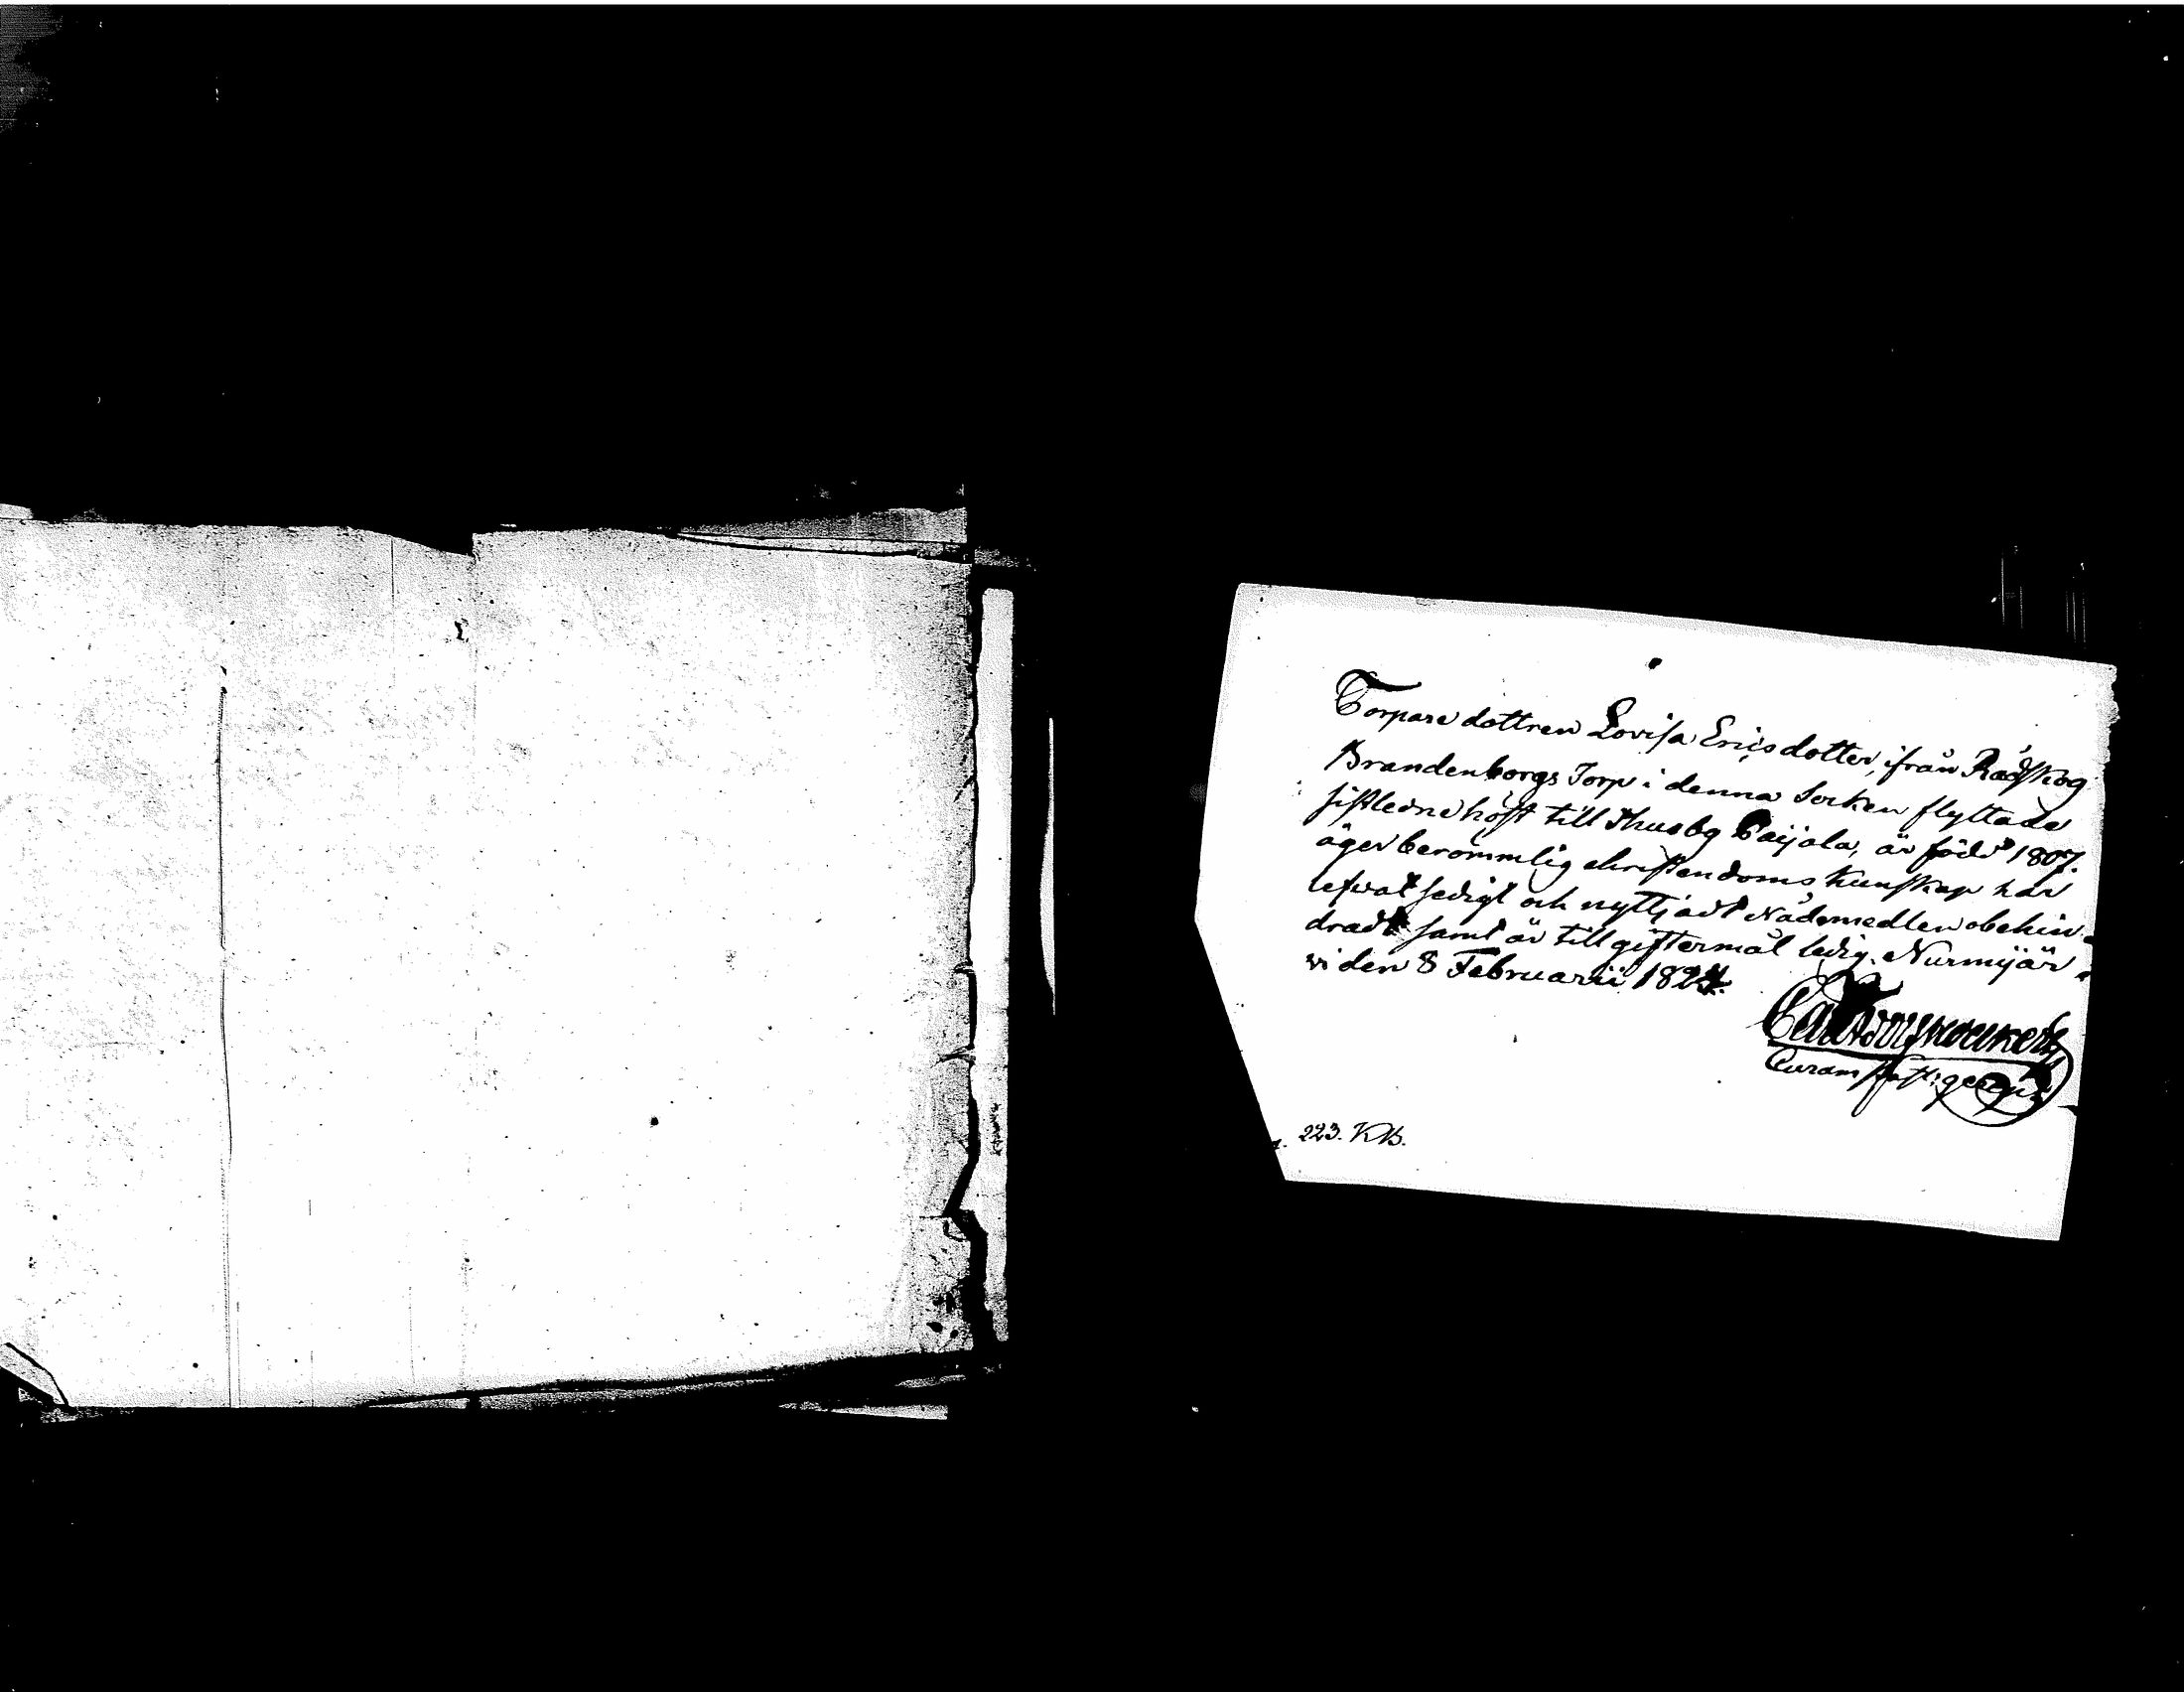 Torpare dottren Lovisa Ericsdotter, ifrån Rådskog
Brandenborgs Torp i denna Socken flyttade
sistledne höst till Thusby Paijala, är född 1807.
äger berömmlig christendoms kunskap har
lefvat sedigt och nyttjadt Nådemedlen obehin-
dradt samt är till giftermål ledig. Nurmijär-
vi den 8 Februarii 1824.
Curam past: gerens
223. KB.